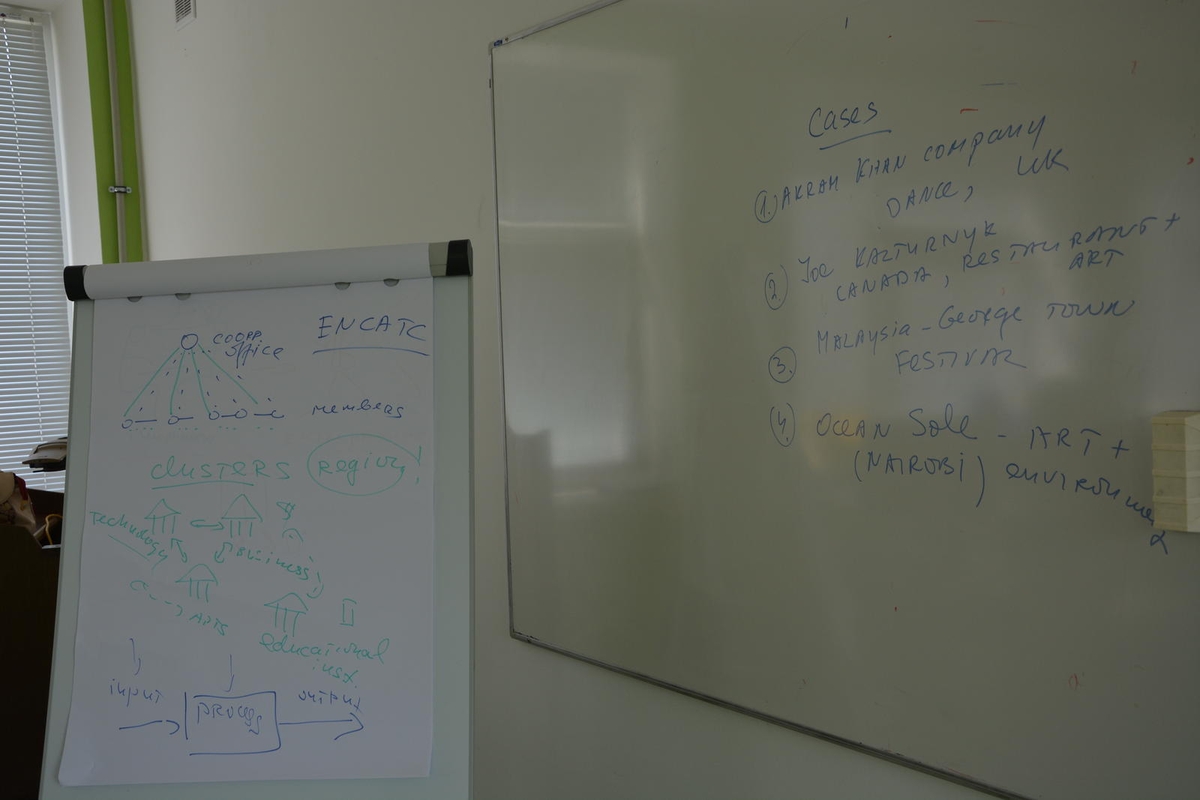 ENCATC
coopp.
office
members
clusters
region!
technology
business
ARTS
educational
inst.
input
process
output
Cases
1. AKRAM KHAN company
DANCE, UK
2. Joe KALTURNYK
CANADA, RESTAURANT +
ART
3. MALAYSIA - George TOWN
FESTIVAL
4. OCEAN Sole - ART +
(NAIROBI) environment